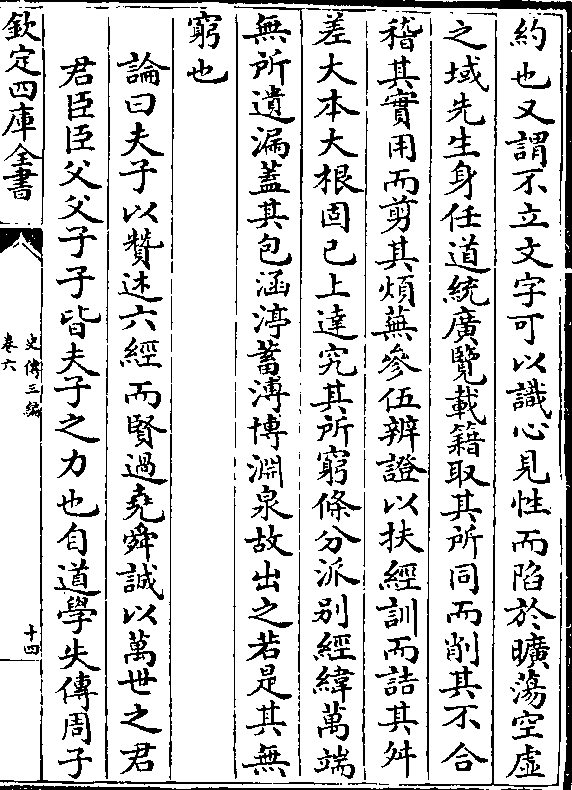 約也又謂不立文字可以識心見性而陷於曠蕩空虛
之域先生身任道統廣覽載籍取其所同而削其不合
稽其實用而剪其煩蕪參伍辨證以扶經訓而詰其舛
差大本大根固已上達究其所窮條分派别經緯萬端
無所遺漏蓋其包涵渟蓄溥博淵泉故出之若是其無
窮也
論曰夫子以贊述六經而賢過堯舜誠以萬世之君
君臣臣父父子子皆夫子之力也自道學失傳周子
欽定四庫全書
史傳三編
卷六
十四